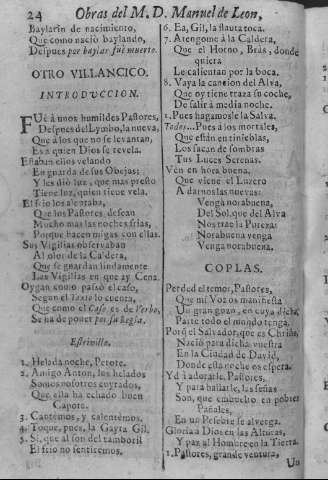 24 Obras del M. D. Manuel de Leon,
Baylarin de nacimiento,
Que como nació baylando,
Despues por baylar fuè muerte.
OTRO VILLANCICO.
INTRODUCCION.
FUè á unos humildes Pastores,
Despues del Lymbo, la nueva,
Que a los que no se levantan,
Es a quien Dios se revela.
Estaban ellos velando
En guarda de sus Obejas;
Y les diò luz, que mas presto
Tiene luz, quien tiene vela.
El frio los alentaba,
Que los Pastores desean
Mucho mas las noches frias,
Porque hacen migas con ellas.
Sus Vigilias observaban
Al olor de la Caldera,
Que se guardan lindamente
Las Vigilias en que ay Cena.
Oygan como passó el caso,
Segun el Texto lo cuenta,
Que como el Caso es de Verbo,
Se ha de poner por su Regla.
Estrivillo.
1. Helada noche, Perote.
2. Amigo Anton, los helados
Somos nosotros cuytados,
Que ella ha echado buen
Capote.
3. Cantèmos, y calentèmos.
4. Toque, pues, la Gayta Gil.
5. Si, que al son del tamboril
El frio no sentirèmos.
6. Ea, Gil, la flauta toca.
7. Atengome à la Caldera,
Que el Horno, Bràs, donde
quiera
Le calientan por la boca.
8. Vaya la cancion del Alva,
Que oy tiene traza su coche,
De salir à media noche.
1. Pues hagamosle la Salva.
Todos. Pues à los mortales,
Que estàn en tinieblas,
Los sacan de sombras
Tus Luces Serenas.
Vèn en hora buena,
Que viene el Luzero
A darnos las nuevas:
Venga norabuena
Del Sol, que del Alva
Nos trae la Pureza:
Norabuena venga
Venga norabuena.
COPLAS.
Perded el temor, Pastores,
Que mi Voz os manifiesta
Un gran gozo, en cuya dicha
Parte todo el mundo tenga.
Porq̃ el Salvador, que es Christo,
Naciò para dicha vuestra
En la Ciudad de David,
Donde esta noche os espera.
Yd à adorarle, Pastores,
Y para hallarle, las señas
Son, que embuelto en pobres
Pañales,
En un Pesebre se alverga.
Gloria à Dios en las Alturas,
Y paz al Hombre en la Tierra.
1. Pastores, grande ventura,
Un